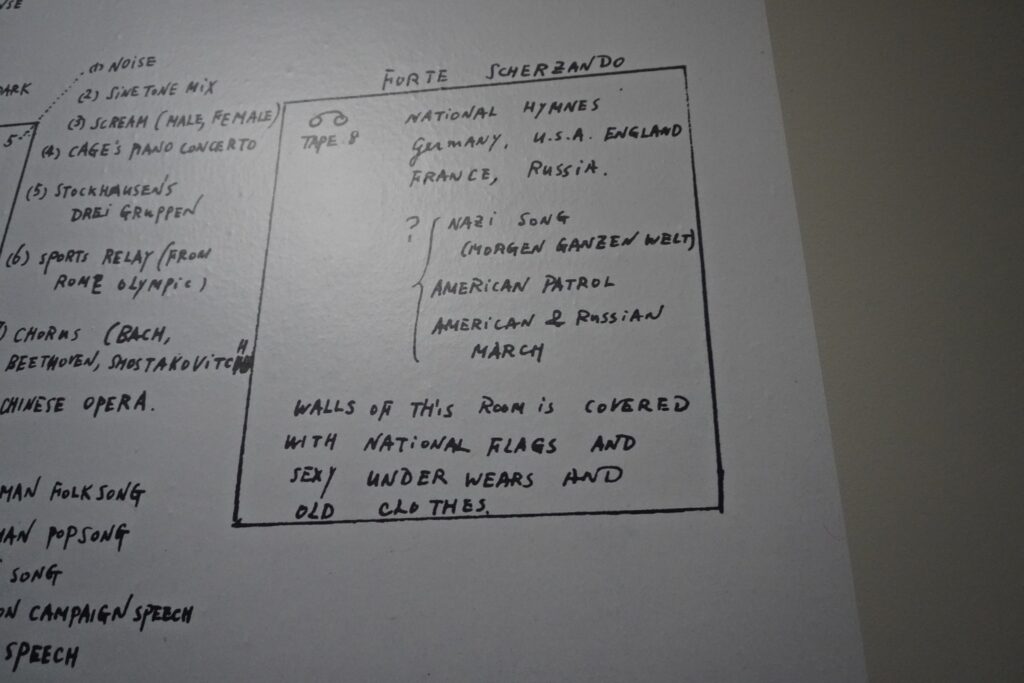 (1) NOISE
(2) SINE TONE MIX
(3) SCREAM (MALE, FEMALE)
(4) CAGE'S PIANO CONCERTO
5
(5) STOCKHAUSEN'S
DREI GRUPPEN
(6) SPORTS RELAY (FROM
ROME OLYMPIC)
CHORUS (BACH,
BEETHOVEN, SHOSTAKOVITCH
CHINESE OPERA.
MAN FOLKSONG
MAN POPSONG
SONG
ON CAMPAIGN SPEECH
SPEECH
FORTE SCHERZANDO
TAPE 8
NATIONAL HYMNES
GERMANY, U.S.A. ENGLAND
FRANCE, RUSSIA.
? { NAZI SONG
(MORGEN GANZEN WELT)
AMERICAN PATROL
AMERICAN & RUSSIAN
MARCH
WALLS OF THIS ROOM IS COVERED
WITH NATIONAL FLAGS AND
SEXY UNDER WEARS AND
OLD CLOTHES.